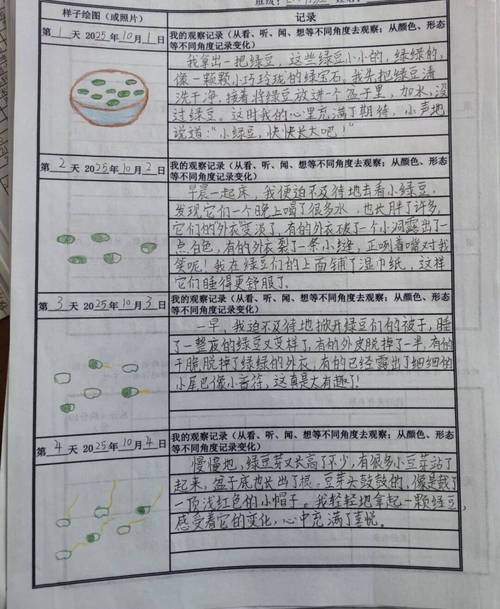 样子绘图（或照片）
记录
第1天 2025年10月1日
我的观察记录（从看、听、闻、想等不同角度去观察；从颜色、形态
等不同角度记录变化）
我拿出一把绿豆，这些绿豆小小的，绿绿的，
像一颗颗小巧玲珑的绿宝石。我先把绿豆清
洗干净，接着将绿豆放进一个盆子里，加水，没
过绿豆。这时我的心里充满了期待，小声地
说道："小绿豆，快快长大吧！"
第2天 2025年10月2日
我的观察记录（从看、听、闻、想等不同角度去观察；从颜色、形态
等不同角度记录变化）
早晨一起床，我便迫不及待地去看小绿豆，
发现它们一个晚上喝了很多水，也长胖了许多，
它们的外衣变淡了，有的外衣破了一个小洞露出了一
点白色，有的外衣裂了一条小缝，正咧着嘴对我
笑呢！我在绿豆们的上面铺了湿巾纸，这样
它们睡得更舒服了。
第3天 2025年10月3日
我的观察记录（从看、听、闻、想等不同角度去观察；从颜色、形态
等不同角度记录变化）
一早，我迫不及待地掀开绿豆们的被子，睡
了一整夜的绿豆又变样了，有的外皮脱掉了一半，有的
干脆脱掉了绿绿的外衣，有的已经露出了细细的
小尾巴像小音符，这真是太有趣了！
第4天 2025年10月4日
我的观察记录（从看、听、闻、想等不同角度去观察；从颜色、形态
等不同角度记录变化）
慢慢地，绿豆芽又长高了不少，有很多小豆芽站了
起来，盆子底也长出了根，豆芽头鼓鼓的，像是戴了
一顶浅红色的小帽子。我轻轻地拿起一颗绿豆，
感受着它的变化，心中充满了喜悦。